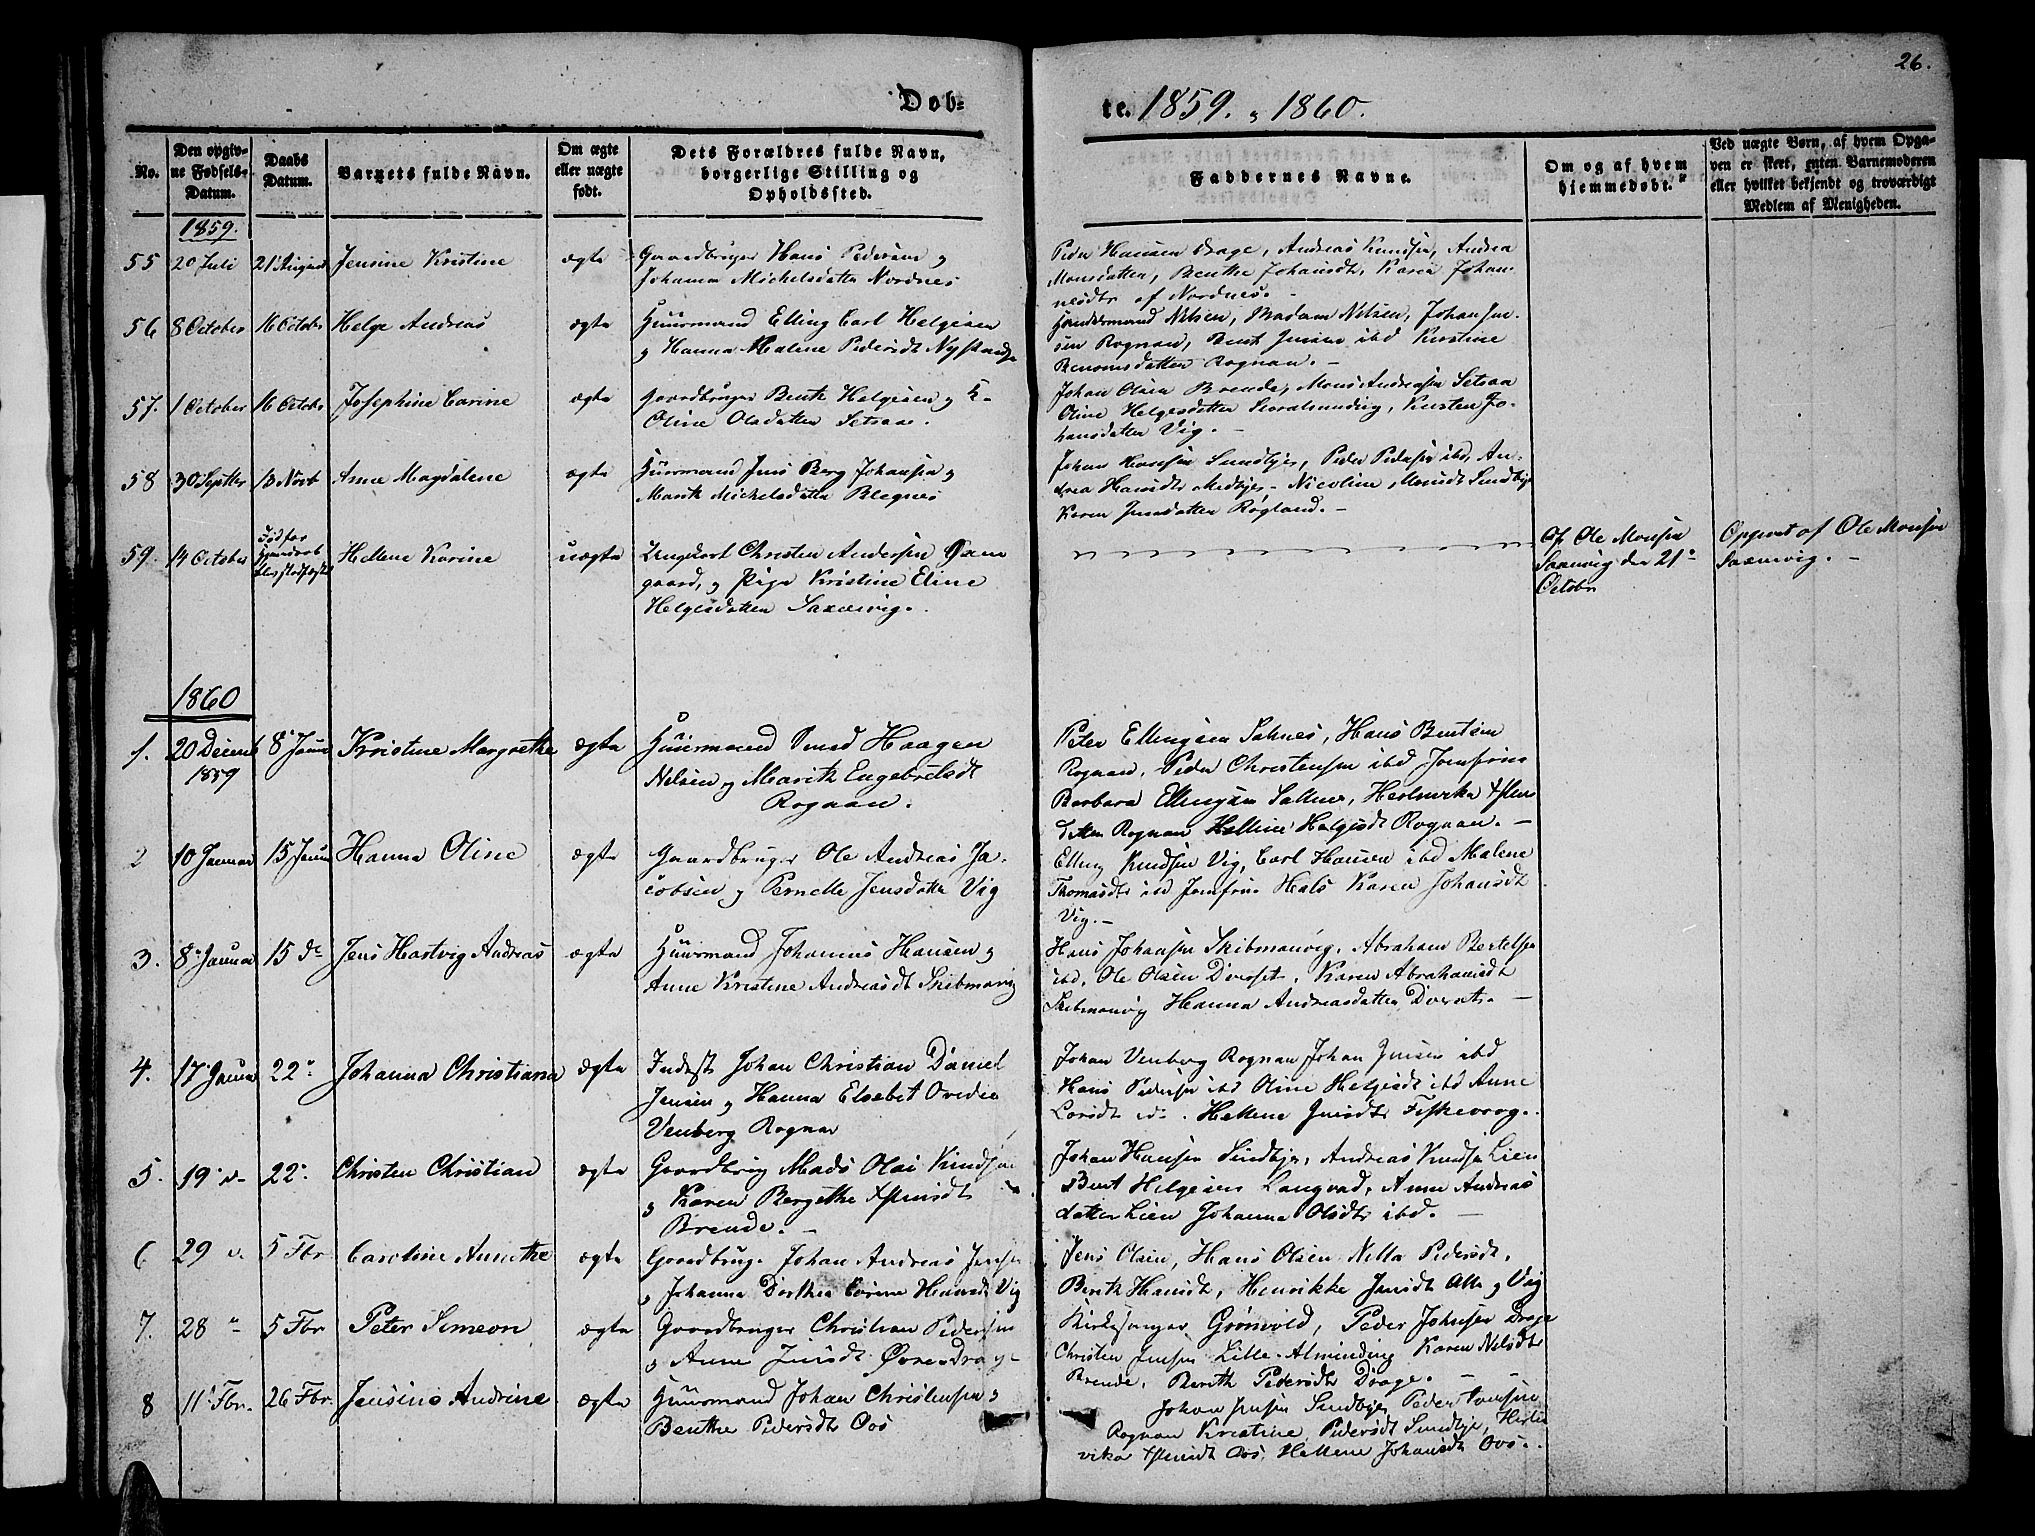 26.
Døb=
te. 1859. & 1860.
No.
Den opgiv-
ne Fødsels-
Datum.
Daabs
Datum.
Barnets fulde Navn.
Om ægte
eller uægte
født.
Dets Forældres fulde Navn,
borgerlige Stilling og
Opholdssted.
Faddernes Navne.
Om og af hvem
hjemmedøbt.
Ved uægte Børn, af hvem Opga-
ven er skert, enten Barnemoderen
eller hvilket bekjendt og troværdigt
Medlem af Menigheden.
1859.
55 20 Juli 21 August Jensine Kristine ægte Gaardbruger Hans Pedersen og
Johanna Michelsdatter Nordnes
Peder Hansen Drage, Andreas Knudsen, Andrea
Monsdatter, Benthe Johansdtr, Karen Johan-
nesdtr af Nordnes.
56 8 October 16 Octobr Helge Andreas ægte Huusmand Elling Carl Helgesen
og Hanna Malene Pedersdt
Handelsmand Nilsen, Madam Nilsen, Johan Jen-
sen Rognan, Bent Jensen ibd Kristine
Rognan. -
57. 1 October 16 Octobr Josephine Carine ægte Gaardbruger Bent Helgesen og K-
Oline Olsdatter Setsaae.
Johan Olsen Brende, Mons Andreasen Setsaa
Oline Helgesdatter Kirsten Jo-
hansdatter Vig. -
58 30 Septbr 13 Novb Anne Magdalene ægte Huusmand Jens Berg Johansen og
Marit Michelsdatter
Johan Hansen Sundbye, Peder Pedersen ibd, An-
drea Hansdtr Medbye - Nicoline Monsdt Sundbye
Karen Jensdatter Røgland. -
59. 14 October Død før
Hellene Karine uægte Ungekarl Christen Andersen
gaard, og Pige Kristine Eline
Helgesdatter Saxenvig.
Af Ole Monsen
Saxenvig den 21de
Octobr
Opgivet af Ole Monsen
Saxenvig. -
1860
1. 20 Decemb
1859
8 Janr Kristine Margrethe ægte Huusmand Smed Haagen
Nilsen og Marith Engebretsdt
Rognan.
Peter Ellingsen Saltnes, Hans Bentsen
Rognan, Peder Christensen ibd Jomfrue
Barbara Ellingsen Saltnes,
datter Rognan Helline Helgesdt Rognan. -
2 10 Januar 15 Janr Hanna Oline ægte Gaardbruger Ole Andreas Ja-
cobsen og Pernelle Jensdatter Vig
Elling Knudsen Vig, Carl Hansen ibd Malene
Thomasdtr ibd Jomfrue Hals Karen Johansdt
Vig. -
3. 8 Januar 15 do Jens Hartvig Andreas ægte Huusmand Johannes Hansen og
Anne Kristine Andreasdt Skibmanvig
Hans Johansen Skibmanvig, Abraham Bertelsen
ibd, Ole Olsen Dverset, Karen Abrahamsdt
Skibmanvig Hanna Andreasdatter Dverset. -
4. 17 Januar 22 Johanna Christiana ægte Inderst Johan Christian Daniel
Jensen og Hanna Elsebet Ovedie
Venberg Rognan
Johan Venberg Rognan Johan Jensen ibd
Hans Pedersen ibd Oline Helgesdt ibd Anne
Larsdt ibd. Hellene Jensdtr Fiskevaag.
5. 19 do 22 Christen Christian ægte Gaardbrug Mads Olai Knudsen
og Karen Bergethe
Brende. -
Johan Hansen Sundbye, Andreas Knudsen Lien
Bent Helgesen Langvad, Anne Andreas
datter Lien Johanna Olsdtr ibd. -
6 29 do 5 Fbr Caroline Annethe ægte Gaardbrug. Johan Andreas Jensen
og Johanna Dorthea Carine Hansdt Vig
Jens Olsen, Hans Olsen Nilla Pedersdt,
Berith Hansdt, Henrikke Jensdt Alle og Vig
7. 28 " 5 Fbr Peter Simeon ægte Gaardbruger Christian Pedersen
og Anne Jensdt Øvre Drage
Kirkesanger Grønvold, Peder Johnsen Drage
Christen Jensen Lille-Alminding Karen Nilsdtr
Brende, Berith Pedersdt Drage.
8 11 Fbr. 26 Fbr. Jensine Andrine ægte Huusmand Johan Christensen og
Benthe Pedersdtr Oos
Johan Jensen Sundbye Peder
Rognan Kristine Pedersdt Sundbye,
Oos, Hellene Johansdt Oos.